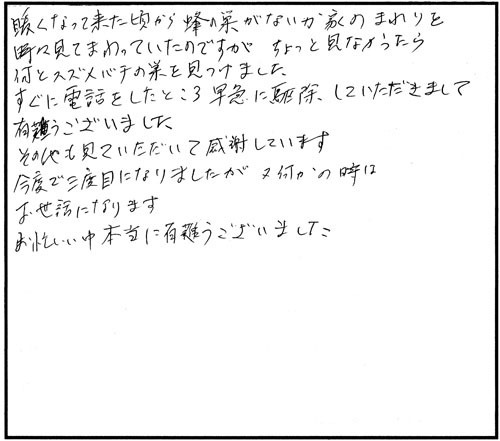 暖くなって来た頃から蜂の巣がないか家のまわりを
時々見てまわっていたのですが ちょっと見なかったら
何とスズメバチの巣を見つけました
すぐに電話をしたところ早急に駆除、していただきまして
有難うございました
その他も見ていただいて感謝しています
今度で三度目になりましたが 又何かの時は
お世話になります
お忙しい中本当に有難うございました